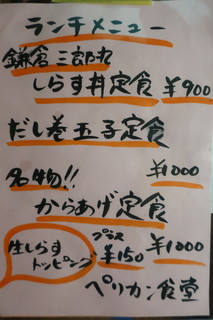 ランチメニュー
鎌倉三郎丸
しらす丼定食 ¥900
だし巻玉子定食
¥1000
名物!!
からあげ定食
¥1000
生しらす
トッピング
プラス
¥150
ペリカン食堂